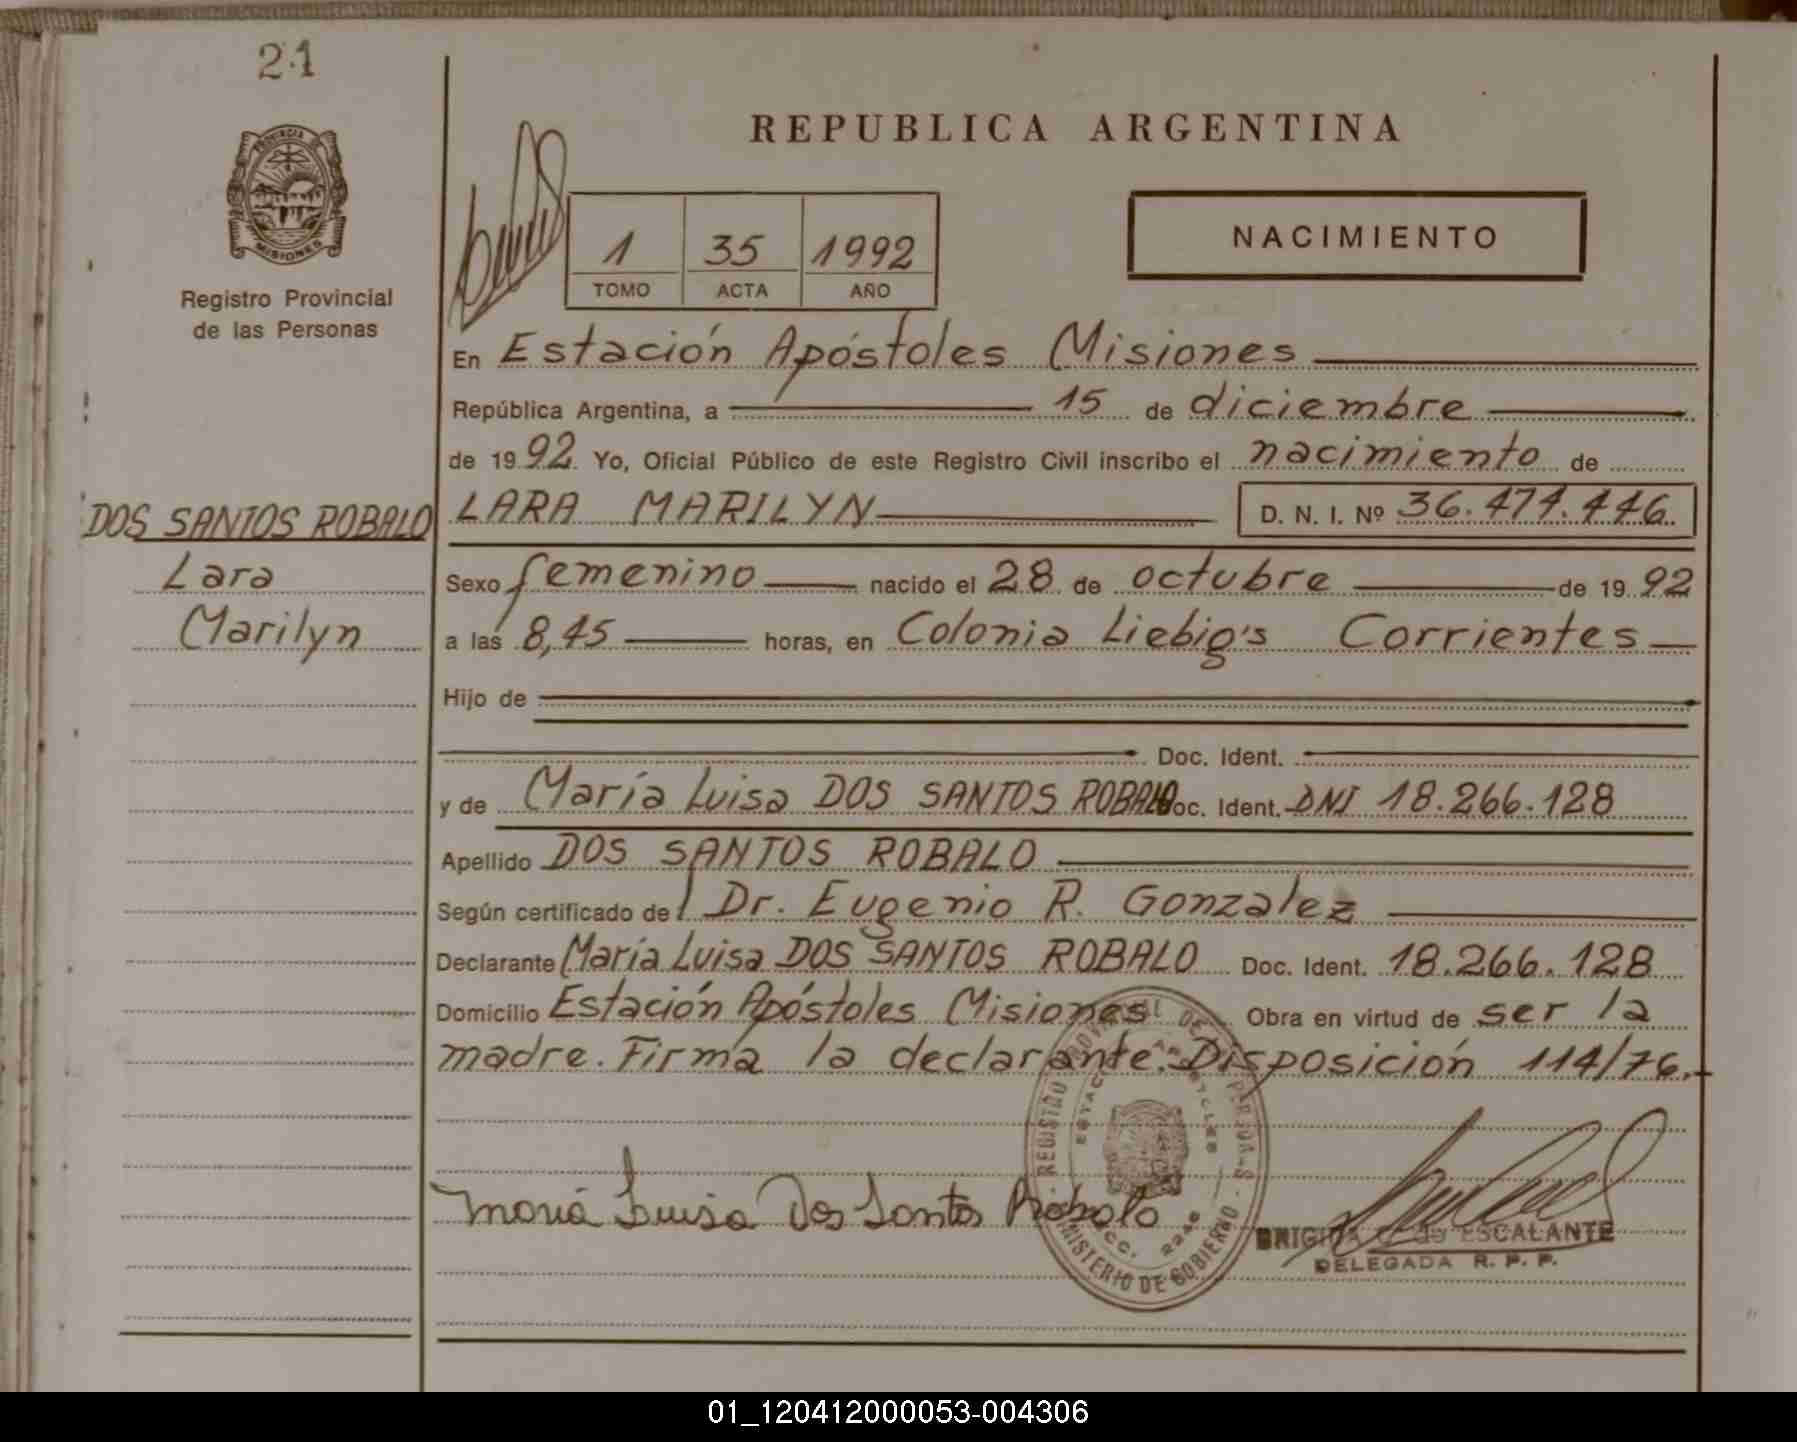 21
PROVINCIA DE
MISIONES
Registro Provincial
de las Personas
DOS SANTOS ROBALO
Lara
Marilyn
REPUBLICA ARGENTINA
1 35 1992
TOMO ACTA AÑO
NACIMIENTO
En Estación Apóstoles Misiones
República Argentina, a 15 de diciembre
de 1992. Yo, Oficial Público de este Registro Civil inscribo el nacimiento de
LARA MARILYN D. N. I. Nº 36.474.446.
Sexo femenino nacido el 28 de octubre de 1992
a las 8,45 horas, en Colonia Liebig's Corrientes
Hijo de
Doc. Ident.
y de María Luisa DOS SANTOS ROBALO Doc. Ident. DNI 18.266.128
Apellido DOS SANTOS ROBALO
Según certificado del Dr. Eugenio R. Gonzalez
Declarante María Luisa DOS SANTOS ROBALO Doc. Ident. 18.266.128
Domicilio Estación Apóstoles Misiones Obra en virtud de ser la
madre. Firma la declarante. Disposición 114/76.-
María Luisa Dos Santos Robalo
REGISTRO PROVINCIAL DE PERSONAS
MINISTERIO DE GOBIERNO
BRIGIDA de ESCALANTE
DELEGADA R. P. P.
01_120412000053-004306